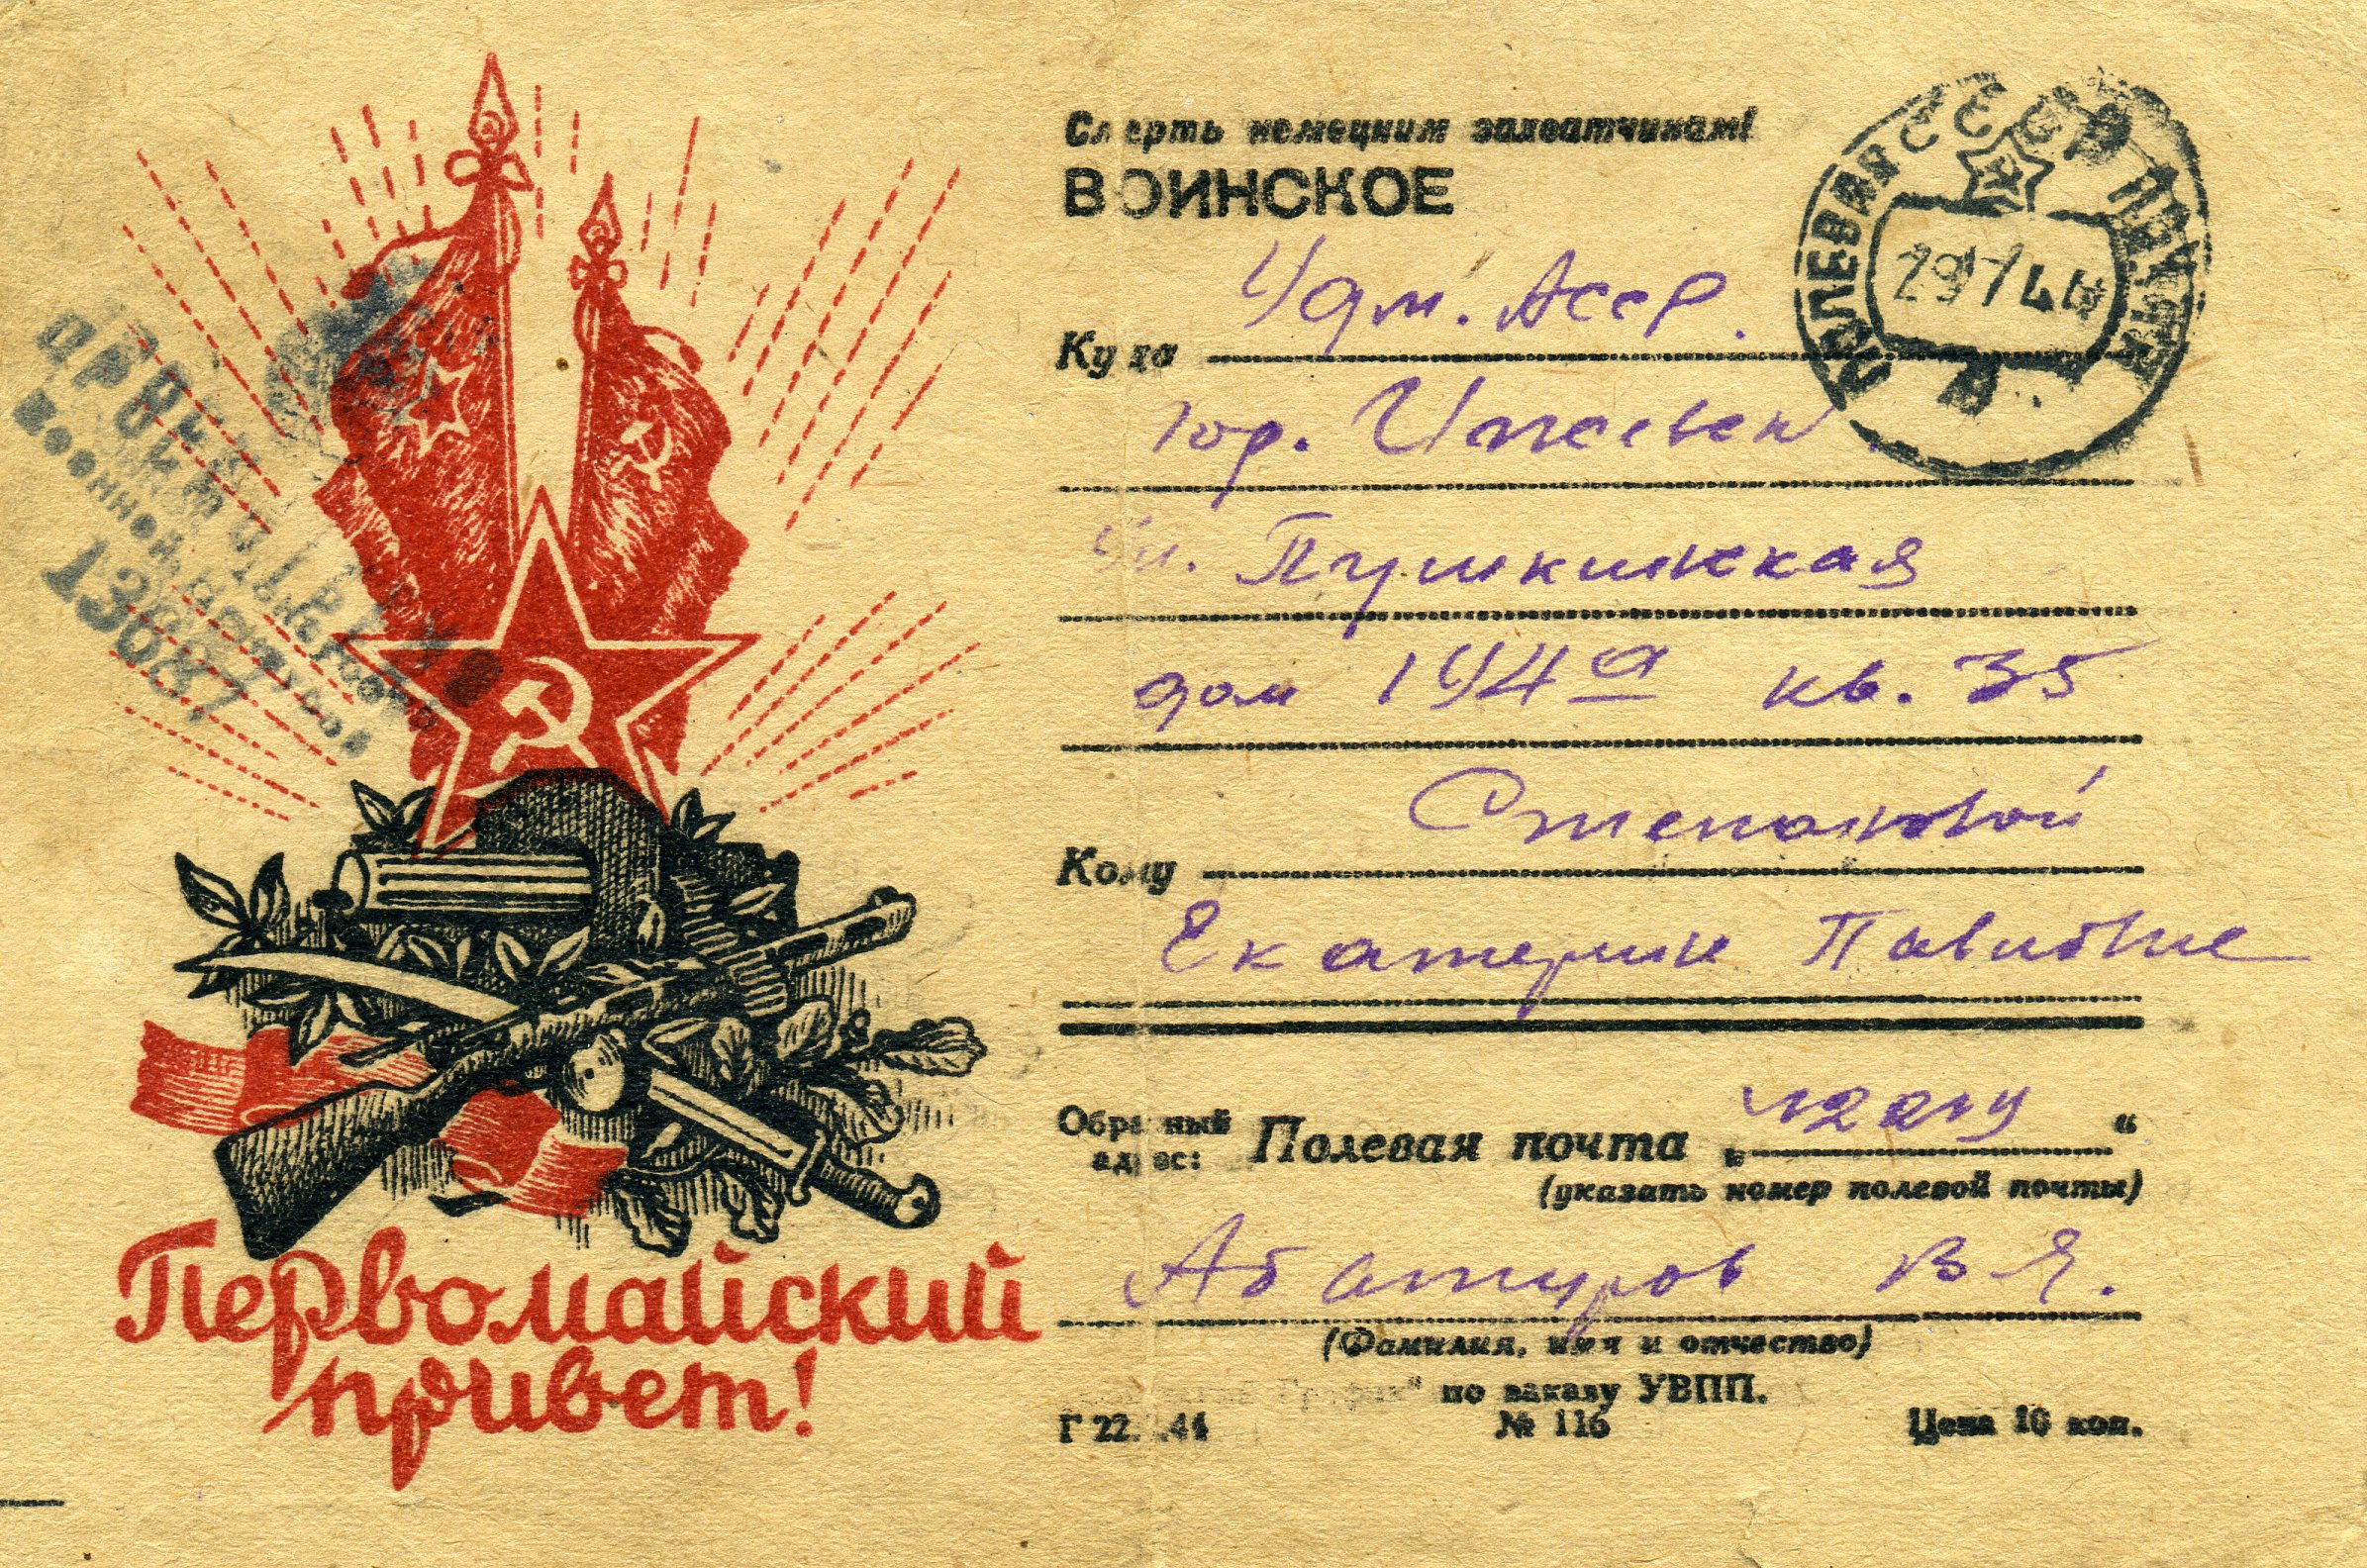 Первомайский
привет!
Просмотрено
Военной Цензурой
13687
Смерть немецким захватчикам!
ВОИНСКОЕ
СССР
ПОЛЕВАЯ ПОЧТА
29 7 44
Куда Удм. Асср.
гор. Ижевск
ул. Пушкинская
дом 194а кв. 35
Кому Степановой
Екатерине Павловне
Обратный адрес: Полевая почта „ “
(указать номер полевой почты)
Абатуров В Я.
(Фамилия, имя и отчество)
по заказу УВПП.
Г 22. .44 № 116 Цена 10 коп.